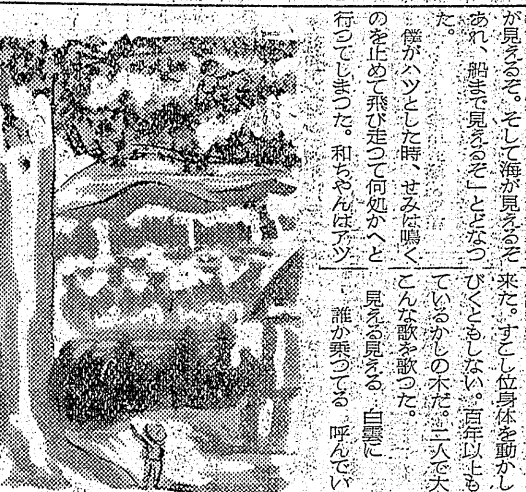 が見えるぞ。そして海が見えるぞ
あれ、船まで見えるぞ」とどなつ
た。
僕がハツとした時、せみは鳴く
のを止めて飛び走つて何処かへと
行つてしまつた。和ちやんはアツ
来た。すこし位身体を動かし
びくともしない。百年以上も
ているかしの木だ。二人で大
こんな歌を歌つた。
見える見える 白雲に
誰か乗つてる 呼んでい